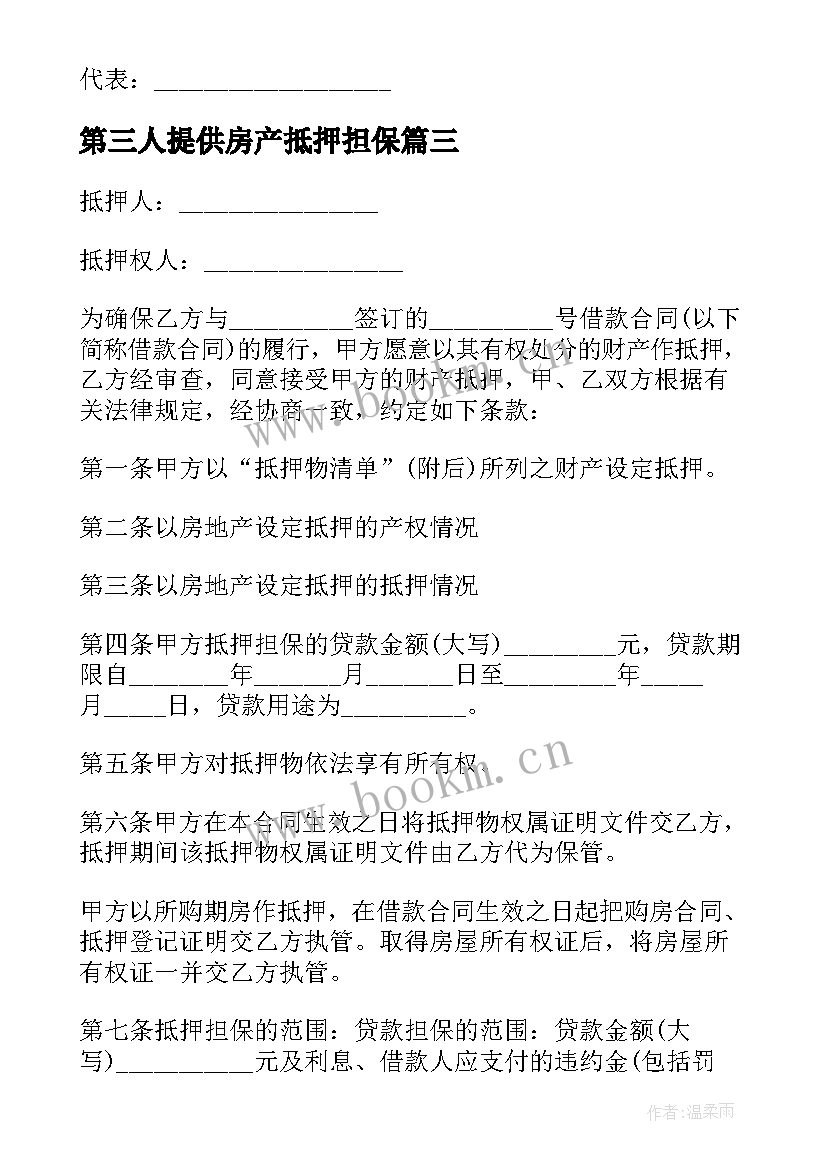 代表：___________________
第三人提供房产抵押担保篇三
抵押人：________________
抵押权人：________________
为确保乙方与__________签订的__________号借款合同(以下
简称借款合同)的履行，甲方愿意以其有权处分的财产作抵押，
乙方经审查，同意接受甲方的财产抵押，甲、乙双方根据有
关法律规定，经协商一致，约定如下条款：
第一条甲方以“抵押物清单”(附后)所列之财产设定抵押。
第二条以房地产设定抵押的产权情况
第三条以房地产设定抵押的抵押情况
第四条甲方抵押担保的贷款金额(大写)_________元，贷款期
限自________年_______月_______日至_________年_____
月_____日，贷款用途为__________。
第五条甲方对抵押物依法享有所有权。
第六条甲方在本合同生效之日将抵押物权属证明文件交乙方，
抵押期间该抵押物权属证明文件由乙方代为保管。
甲方以所购期房作抵押，在借款合同生效之日起把购房合同、
抵押登记证明交乙方执管。取得房屋所有权证后，将房屋所
有权证一并交乙方执管。
第七条抵押担保的范围：贷款担保的范围：贷款金额(大
写)___________元及利息、借款人应支付的违约金(包括罚
www.bookm.cn
www.bookm.cn
作者:温柔雨